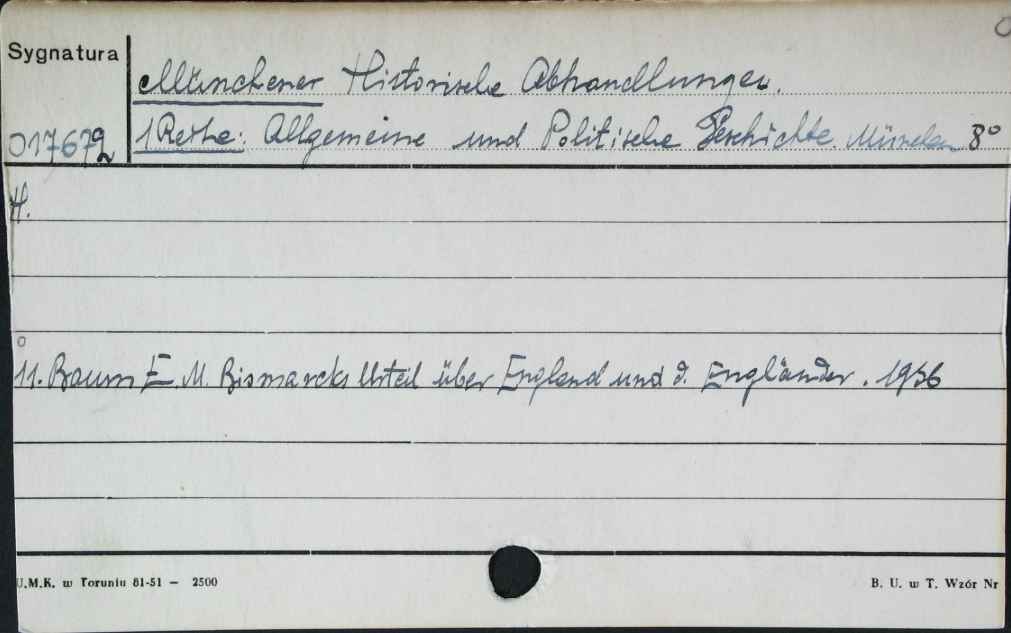 Sygnatura
Münchener Historische Abhandlungen.
017672
1 Reihe: Allgemeine und Politische Geschichte. München 8°
H.
11. Baum E. M. Bismarcks Urteil über England und d. Engländer. 1936
U.M.K. w Toruniu 81-51 — 2500
B. U. w T. Wzór Nr